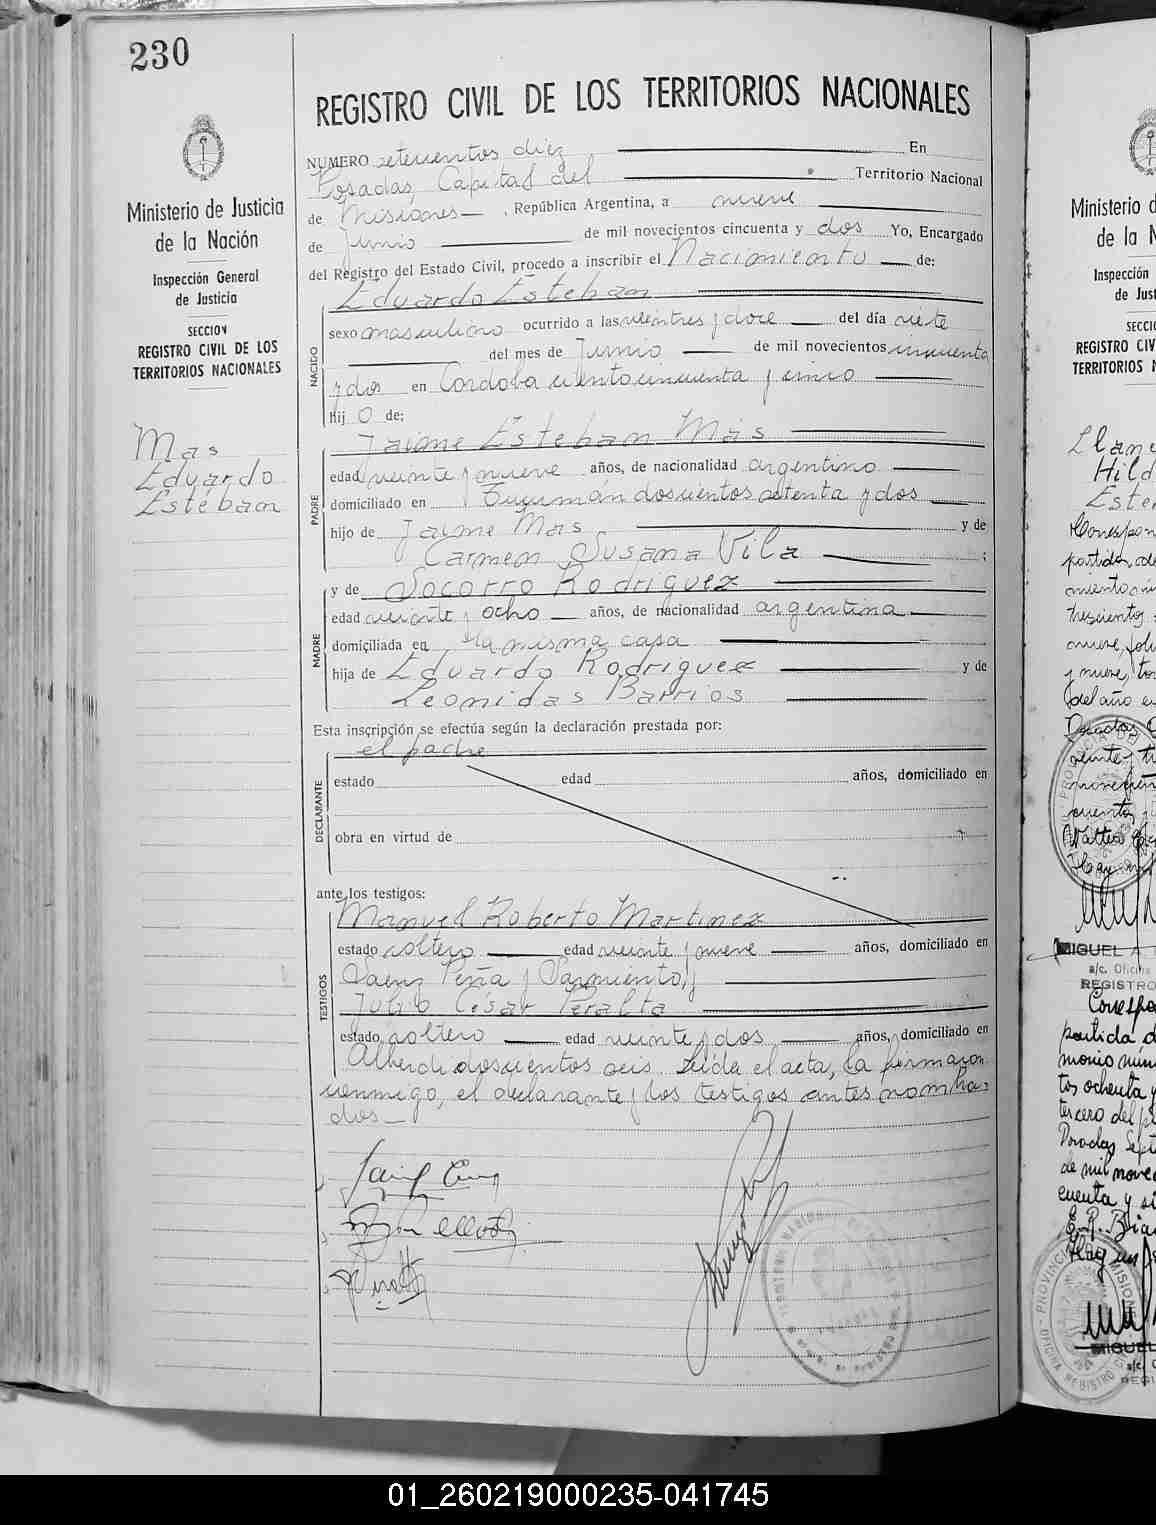 230
Ministerio de Justicia
de la Nación
Inspección General
de Justicia
SECCION
REGISTRO CIVIL DE LOS
TERRITORIOS NACIONALES
Mas
Eduardo
Estéban
REGISTRO CIVIL DE LOS TERRITORIOS NACIONALES
NUMERO setecientos diez En
Posadas, Capital del Territorio Nacional
de Misiones , República Argentina, a nueve
de Junio de mil novecientos cincuenta y dos Yo, Encargado
del Registro del Estado Civil, procedo a inscribir el Nacimiento de:
Eduardo Esteban
NACIDO
sexo masculino ocurrido a las veintres y doce del día siete
del mes de Junio de mil novecientos cincuenta
y dos en Córdoba ciento cincuenta y cinco
hij o de:
Jaime Esteban Mas
PADRE
edad veinte y nueve años, de nacionalidad argentino
domiciliado en Tucumán doscientos setenta y dos
hijo de Jaime Mas y de
Carmen Susana Vila ;
y de Socorro Rodriguez
MADRE
edad veinte y ocho años, de nacionalidad argentina
domiciliada en la misma casa
hija de Eduardo Rodriguez y de
Leonidas Barrios
Esta inscripción se efectúa según la declaración prestada por:
el padre
DECLARANTE
estado edad años, domiciliado en
obra en virtud de
ante los testigos:
Manuel Roberto Martinez
TESTIGOS
estado soltero edad veinte y nueve años, domiciliado en
Saenz Peña y Sarmiento, y
Julio César Peralta
estado soltero edad veinte y dos años, domiciliado en
Alberdi doscientos seis. Leída el acta, la firmaron
conmigo, el declarante y los testigos antes nombra=
dos
Ministerio d
de la N
Inspecció
de Just
SECCIO
REGISTRO CIV
TERRITORIOS N
Llane
Hild
Este
MIGUEL A
a/c. Oficina
REGISTRO
partida d
monio núm
tos ochenta y
tercero del
Posadas Sept
de mil nove
cuenta y si
MIGUEL
REGI
01_260219000235-041745